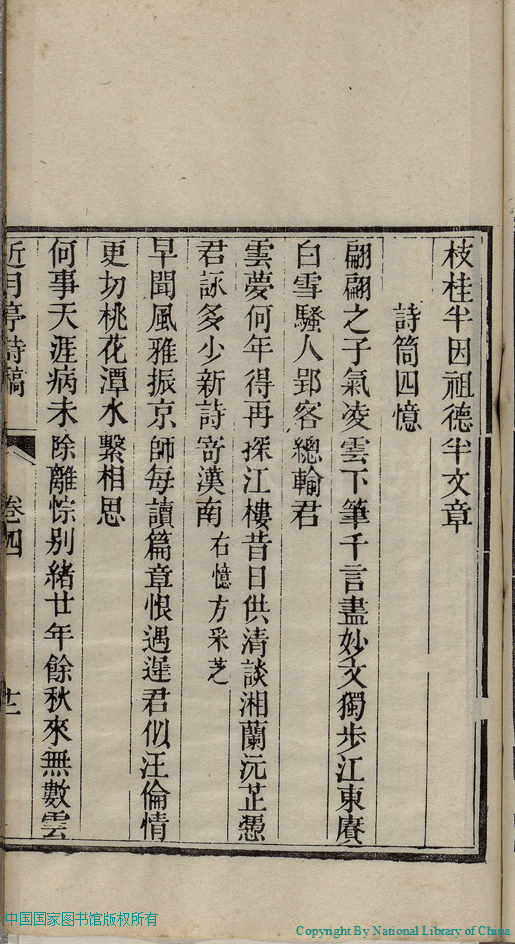 枝桂半因祖德半文章
詩筒四憶
翩翩之子氣凌雲下筆千言盡妙文獨步江東賡
白雪騷人郢客總輸君
雲夢何年得再探江樓昔日供清談湘蘭沅芷憑
君詠多少新詩寄漢南 右憶方采芝
早聞風雅振京師每讀篇章恨遇遲君似汪倫情
更切桃花潭水繫相思
何事天涯病未除離悰别緒廿年餘秋來無數雲
近月亭詩稿 卷四 十二
中国国家图书馆版权所有
Copyright By National Library of China